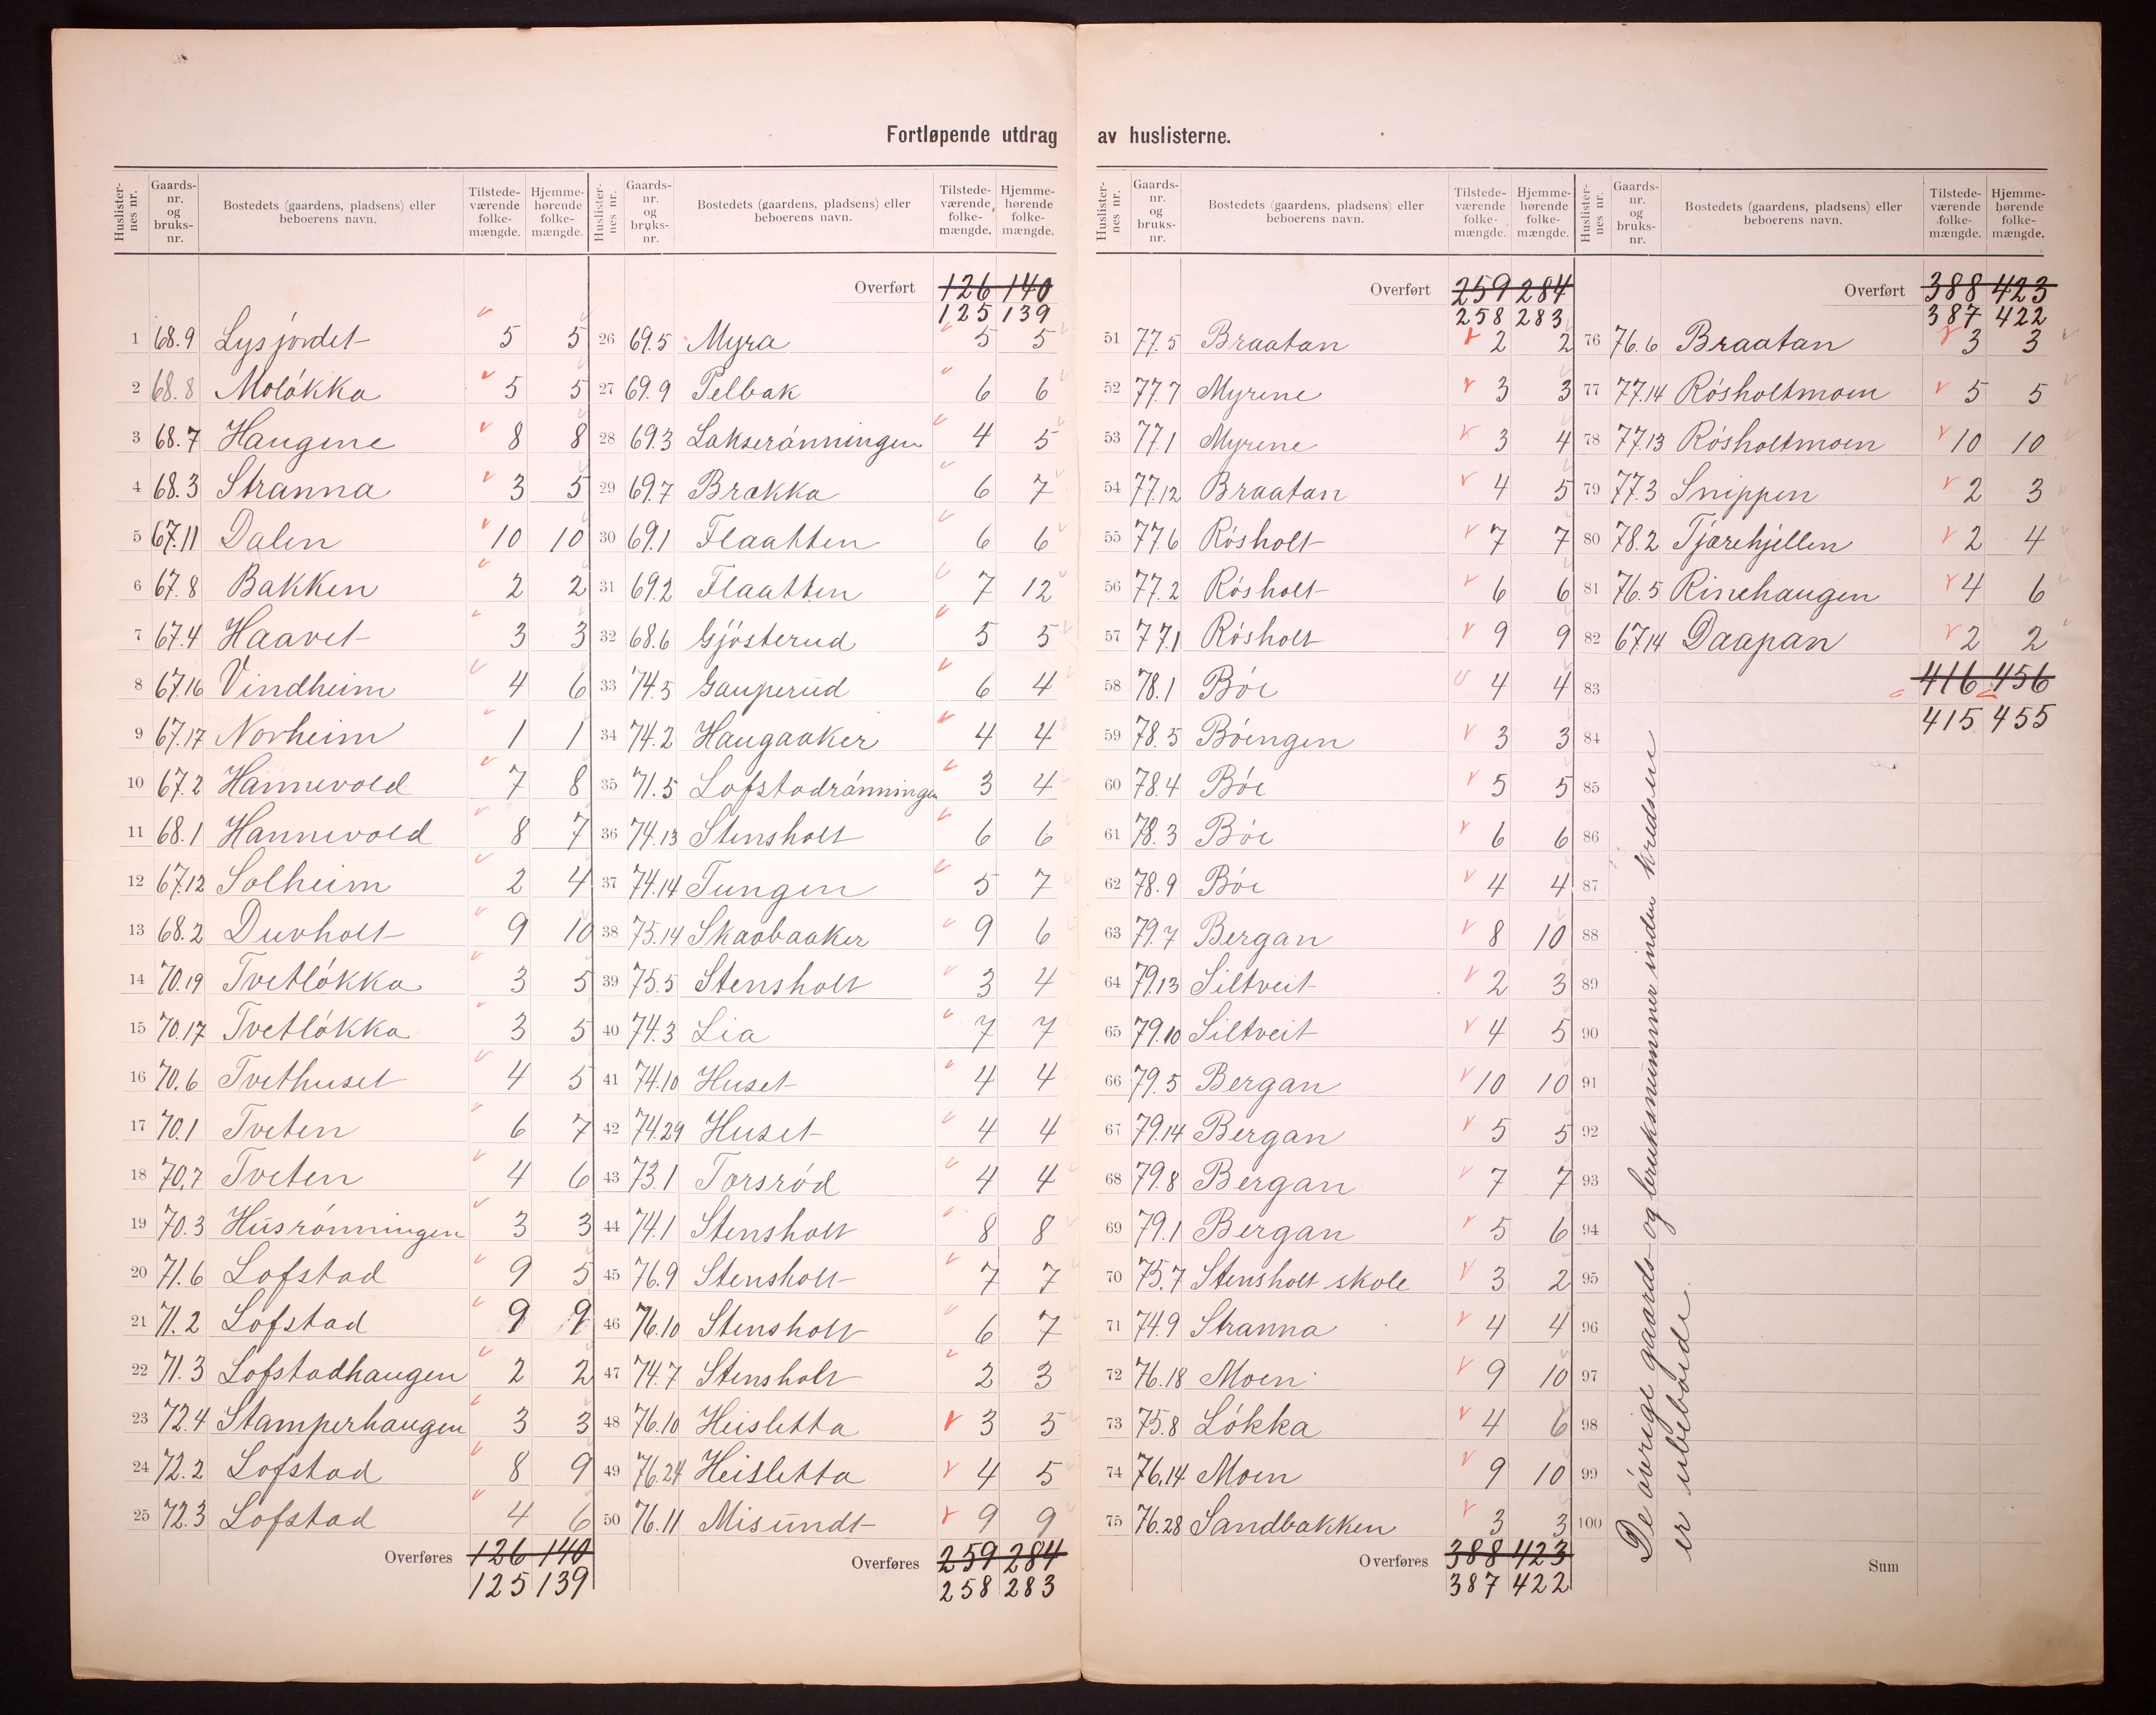 Fortløpende utdrag av huslisterne.
Huslisternes nr. Gaards-nr. og bruks-nr. Bostedets (gaardens, pladsens) eller beboerens navn. Tilstedeværende folkemængde. Hjemmehørende folkemængde.
1 68.9 Lysjordet 5 5
2 68.8 Moløkka 5 5
3 68.7 Haugene 8 8
4 68.3 Stranna 3 5
5 67.11 Dalen 10 10
6 67.8 Bakken 2 2
7 67.4 Haavet 3 3
8 67.16 Vindheim 4 6
9 67.17 Norheim 1 1
10 67.2 Hannevold 7 8
11 68.1 Hannevold 8 7
12 67.12 Solheim 2 4
13 68.2 Duvholt 9 10
14 70.19 Tvetløkka 3 5
15 70.17 Tvetløkka 3 5
16 70.6 Tvethuset 4 5
17 70.1 Tveten 6 7
18 70.7 Tveten 4 6
19 70.3 Husrønningen 3 3
20 71.6 Lofstad 9 5
21 71.2 Lofstad 9 9
22 71.3 Lofstadhaugen 2 2
23 72.4 Stamperhaugen 3 3
24 72.2 Lofstad 8 9
25 72.3 Lofstad 4 6
Overføres 126 140
125 139
Huslisternes nr. Gaards-nr. og bruks-nr. Bostedets (gaardens, pladsens) eller beboerens navn. Tilstedeværende folkemængde. Hjemmehørende folkemængde.
Overført 126 140
125 139
26 69.5 Myra 5 5
27 69.9 Pelbak 6 6
28 69.3 Lakserønningen 4 5
29 69.7 Brækka 6 7
30 69.1 Flaatten 6 6
31 69.2 Flaatten 7 12
32 68.6 Gjøsterud 5 5
33 74.5 Gauperud 6 4
34 74.2 Haugaaker 4 4
35 71.5 Lofstadrønningen 3 4
36 74.13 Stensholt 6 6
37 74.14 Tungen 5 7
38 75.14 Skaabaaker 9 6
39 75.5 Stensholt 3 4
40 74.3 Lia 7 7
41 74.10 Huset 4 4
42 74.29 Huset 4 4
43 73.1 Torsrød 4 4
44 74.1 Stensholt 8 8
45 76.9 Stensholt 7 7
46 76.10 Stensholt 6 7
47 74.7 Stensholt 2 3
48 76.10 Heisletta 3 5
49 76.24 Heisletta 4 5
50 76.11 Misundt 9 9
Overføres 259 284
258 283
Huslisternes nr. Gaards-nr. og bruks-nr. Bostedets (gaardens, pladsens) eller beboerens navn. Tilstedeværende folkemængde. Hjemmehørende folkemængde.
Overført 259 284
258 283
51 77.5 Braatan 2 2
52 77.7 Myrene 3 3
53 77.1 Myrene 3 4
54 77.12 Braatan 4 5
55 77.6 Røsholt 7 7
56 77.2 Røsholt 6 6
57 77.1 Røsholt 9 9
58 78.1 Bøe 4 4
59 78.5 Bøengen 3 3
60 78.4 Bøe 5 5
61 78.3 Bøe 6 6
62 78.9 Bøe 4 4
63 79.7 Bergan 8 10
64 79.13 Siltveit 2 3
65 79.10 Siltveit 4 5
66 79.5 Bergan 10 10
67 79.14 Bergan 5 5
68 79.8 Bergan 7 7
69 79.1 Bergan 5 6
70 75.7 Stensholt skole 3 2
71 74.9 Stranna 4 4
72 76.18 Moen 9 10
73 75.8 Løkka 4 6
74 76.14 Moen 9 10
75 76.28 Sandbakken 3 3
Overføres 388 423
387 422
Huslisternes nr. Gaards-nr. og bruks-nr. Bostedets (gaardens, pladsens) eller beboerens navn. Tilstedeværende folkemængde. Hjemmehørende folkemængde.
Overført 388 423
387 422
76 76.6 Braatan 3 3
77 77.14 Røsholtmoen 5 5
78 77.13 Røsholtmoen 10 10
79 77.3 Snippen 2 3
80 78.2 Tjærehjellen 2 4
81 76.5 Rinehaugen 4 6
82 67.14 Daapan 2 2
83 416 456
415 455
84
85
86
87
88
89
90
91
92
93
94
95
96
97
98
99
100
Sum
De øvrige gaards- og bruksnummer inden kredsen
er ubeboede.